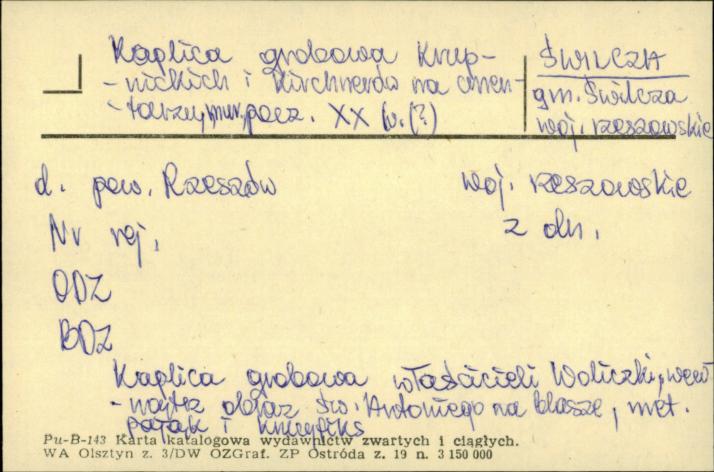 Kaplica grobowa Krup-
-nickich i Kirchnerów na cmen-
-tarzu, mur, pocz. XX w. (?)
ŚWILCZA
gm. Świlcza
woj. rzeszowskie
d. pow. Rzeszów
woj. rzeszowskie
Nr rej.
z dn.
ODZ
BDZ
Kaplica grobowa właścicieli Woliczki, wew-
obraz św. Antoniego na blasze, met.
i krucyfiks
Pu-B-143 Karta katalogowa wydawnictw zwartych i ciągłych.
WA Olsztyn z. 3/DW OZGraf. ZP Ostróda z. 19 n. 3 150 000